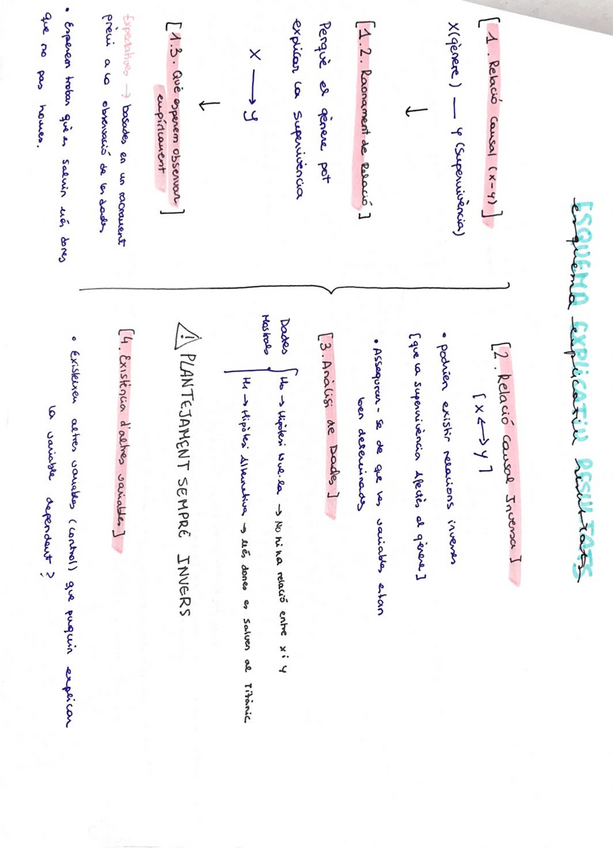 ESQUEMA EXPLICATIU RESULTATS
esquema explicatiu resultats
[1. Relació Causal (x-y)]
X(gènere) — Y (Supervivència)
↓
[1.2. Raonament de Relació]
Perquè el gènere pot
explicar la supervivència
X → Y
↓
[1.3. Què esperem observar
empíricament]
Expectatives → basades en un raonament
prèvi a la observació de les dades
• Esperem trobar que es salvin més dones
que no pas homes.
[2. Relació Causal Inversa]
[X ↔ Y]
• Podrien existir relacions inverses
[que la supervivència afectés al gènere]
• Assegurar-se de que les variables estan
ben determinades
[3. Anàlisi de Dades]
Dades
Mostrals
H₀ → Hipòtesi Nul·la → No hi ha relació entre x i y
H₁ → Hipòtesi Alternativa → més dones es salven al Titànic
⚠ PLANTEJAMENT SEMPRE INVERS
[4. Existència d'altres variables]
• Existeixen altres variables (control) que puguin explicar
la variable dependent?